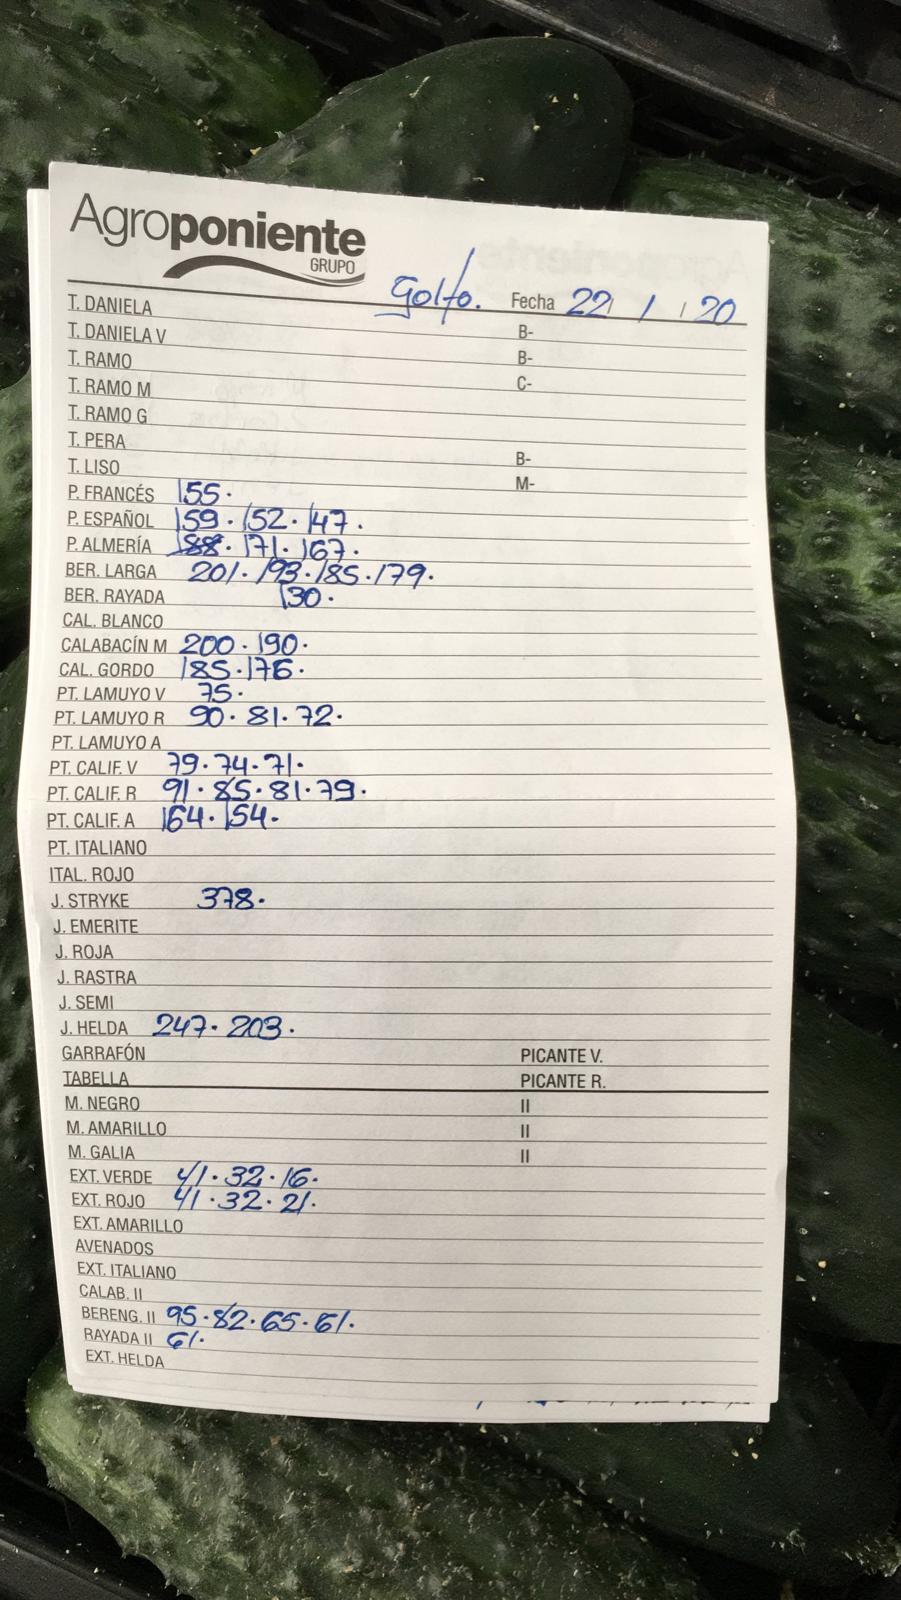 Agroponiente
GRUPO
Golfo. Fecha 22/1/20
T. DANIELA
T. DANIELA V B-
T. RAMO B-
T. RAMO M C-
T. RAMO G
T. PERA
T. LISO B-
P. FRANCÉS 155. M-
P. ESPAÑOL 159. 152. 147.
P. ALMERÍA 188. 171. 167.
BER. LARGA 201. 193. 185. 179.
BER. RAYADA 130.
CAL. BLANCO
CALABACÍN M 200. 190.
CAL. GORDO 185. 176.
PT. LAMUYO V 75.
PT. LAMUYO R 90. 81. 72.
PT. LAMUYO A
PT. CALIF. V 79. 74. 71.
PT. CALIF. R 91. 85. 81. 79.
PT. CALIF. A 164. 154.
PT. ITALIANO
ITAL. ROJO
J. STRYKE 378.
J. EMERITE
J. ROJA
J. RASTRA
J. SEMI
J. HELDA 247. 203.
GARRAFÓN PICANTE V.
TABELLA PICANTE R.
M. NEGRO II
M. AMARILLO II
M. GALIA II
EXT. VERDE 41. 32. 16.
EXT. ROJO 41. 32. 21.
EXT. AMARILLO
AVENADOS
EXT. ITALIANO
CALAB. II
BERENG. II 95. 82. 65. 61.
RAYADA II 61.
EXT. HELDA